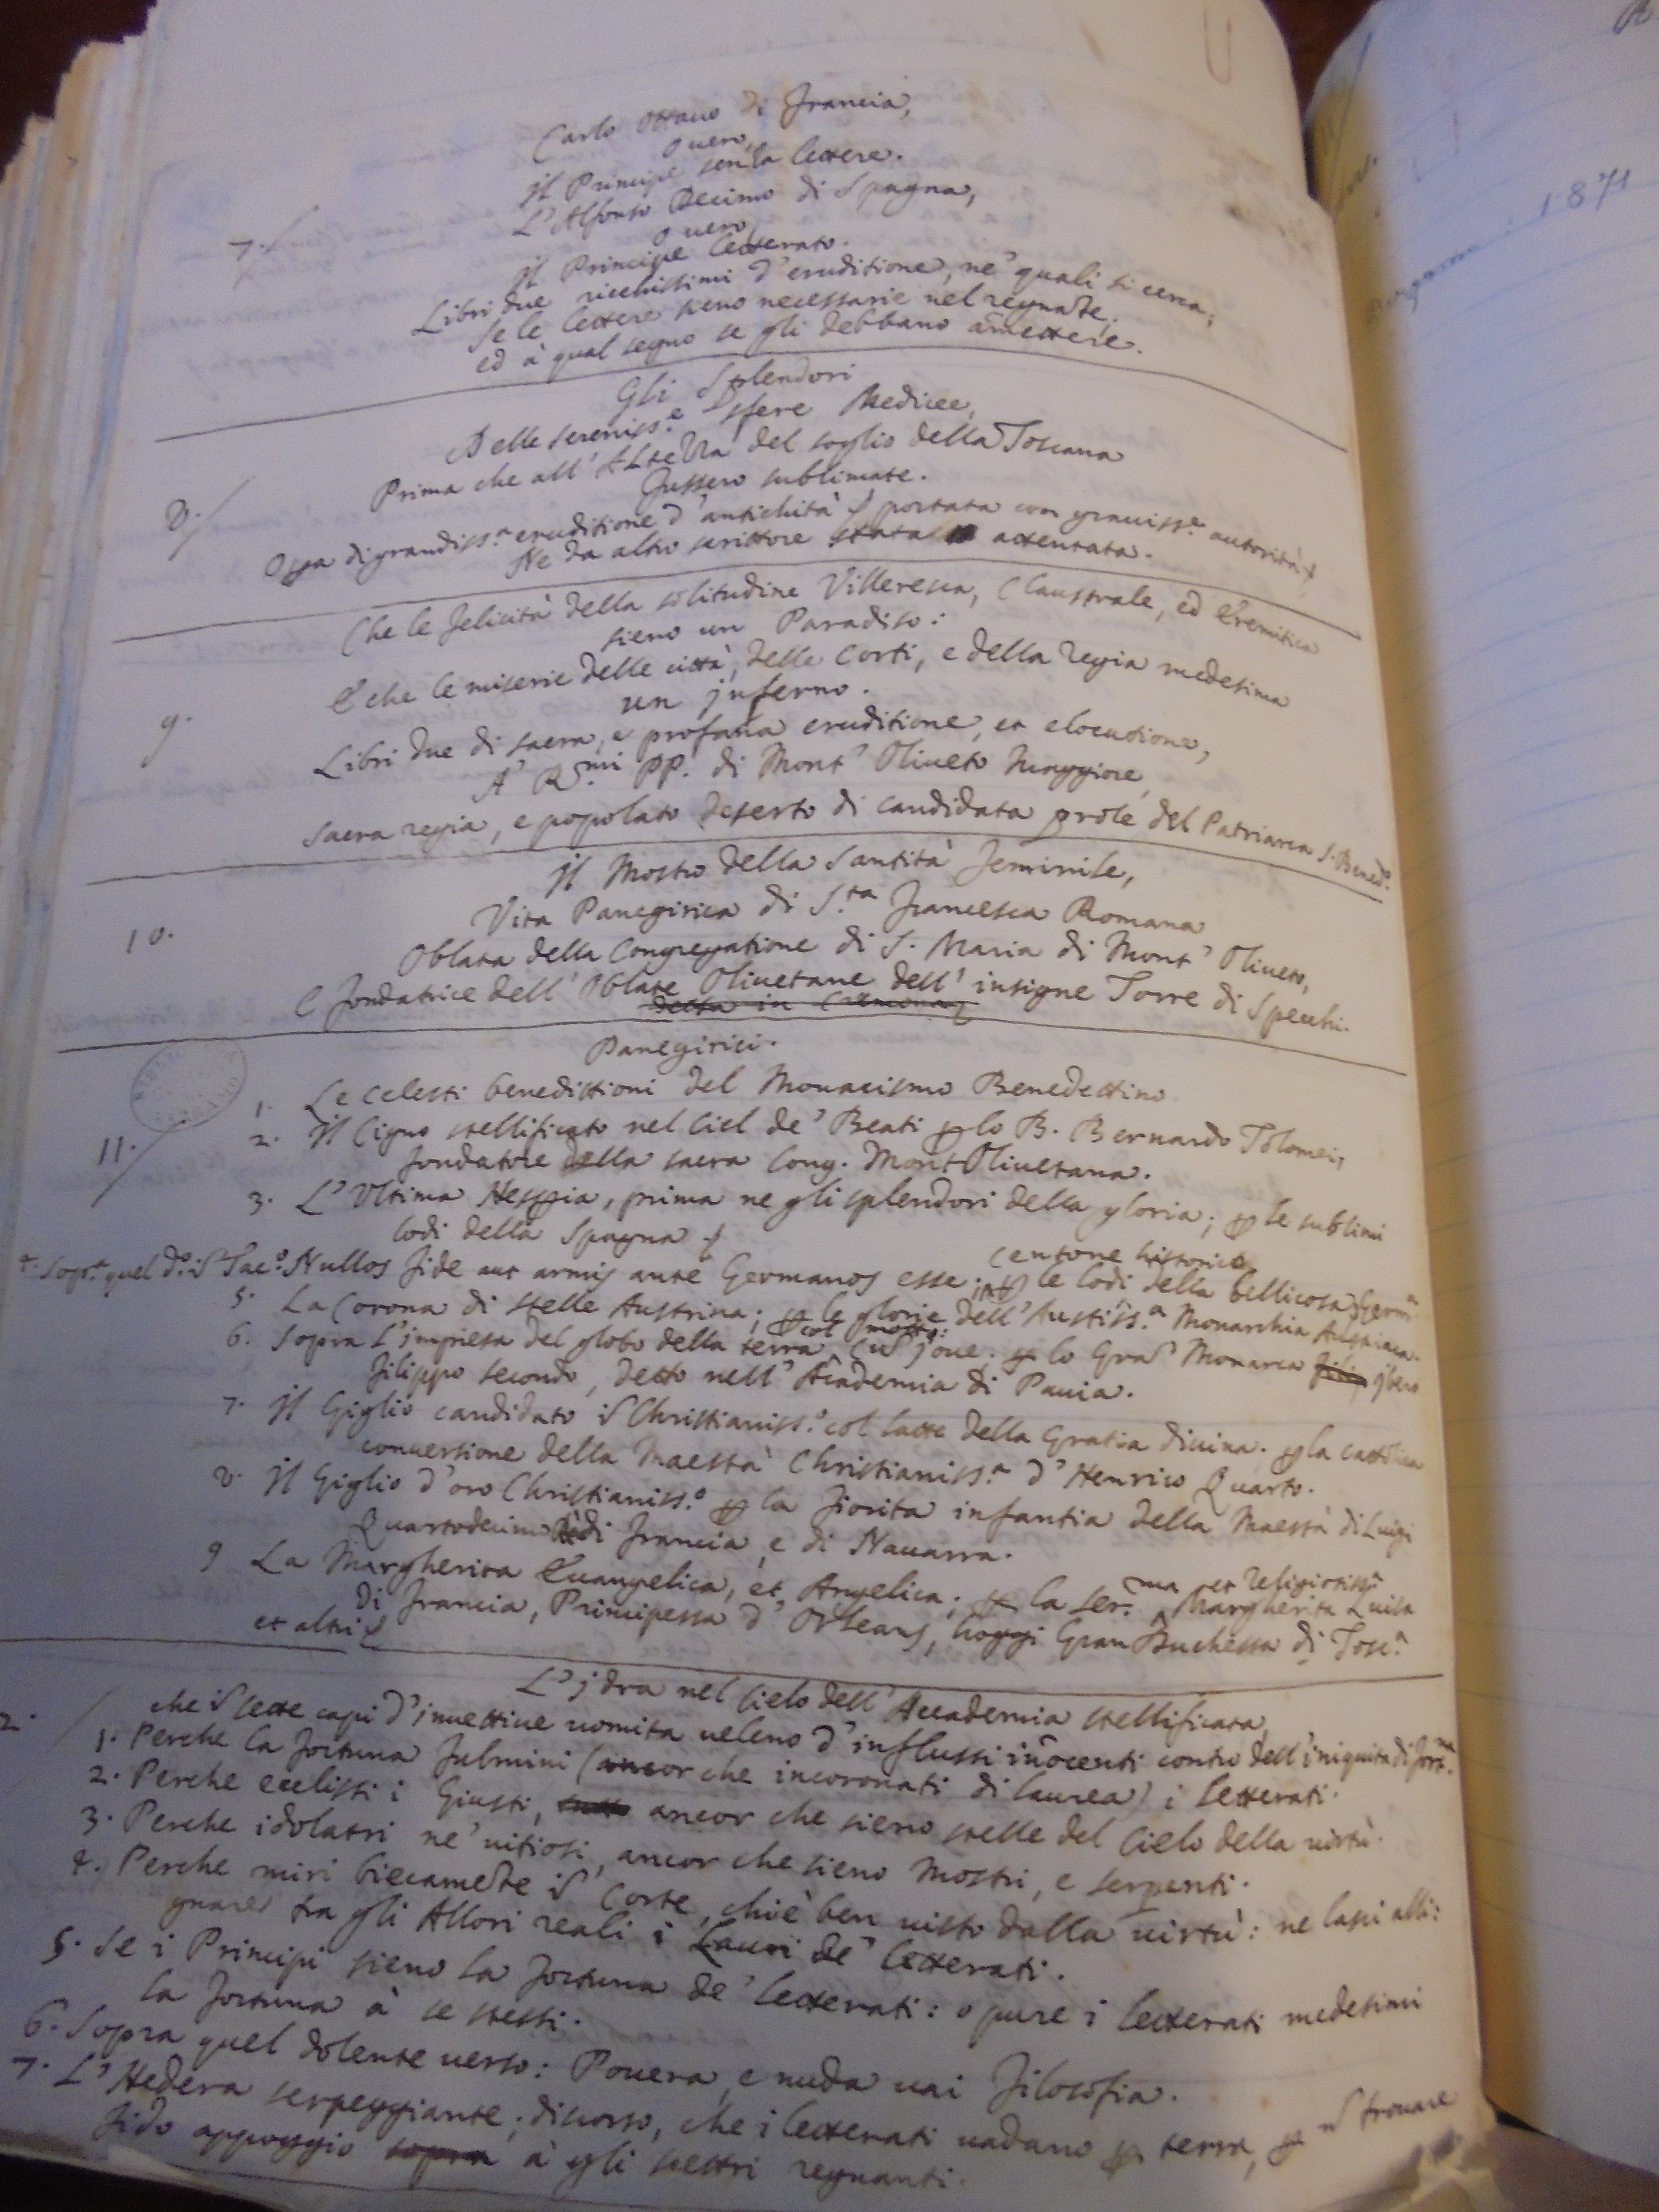 Carlo Ottauo di Francia,
ouero,
Il Principe senza lettere.
7. L'Alfonso Decimo di Spagna,
ouero
Il Principe letterato.
Libri due ricchissimi d'eruditione, ne' quali si cerca,
se le lettere sieno necessarie nel regnare,
ed à qual segno se gli debbano amettere.
Gli Splendori
Delle sereniss.e Sfere Medicee,
Prima che all'Altezza del soglio della Toscana
8. Fussero sublimate.
Opa di grandiss.a eruditione d'antichità portata con grauiss.e autorità,
Ne da altro scrittore stata attentata.
Che le felicità della solitudine Villeresca, Claustrale, ed Eremitica
sieno un Paradiso:
E che le miserie delle città, delle Corti, e della regia medesima
9. un inferno.
Libri due di sacra, e profana eruditione, et elocutione,
A' R.mi PP. di Mont' Oliueto Maggiore,
sacra regia, e popolato deserto di candidata prole del Patriarca S. Bened.o
Il Mostro della Santità feminile,
10. Vita Panegirica di S.ta Francesca Romana
Oblata della Congregatione di S. Maria di Mont' Oliueto,
E fondatrice dell' Oblate Oliuetane dell' insigne Torre di Specchi.
detta in Cremona
Panegirici.
11. 1. Le celesti benedittioni del Monacismo Benedettino
2. Il Cigno stellificato nel Ciel de' Beati p lo B. Bernardo Tolomei,
fondatore della sacra Cong. Mont Oliuetana.
3. L'Vltima Hespia, prima ne gli splendori della gloria; p le sublimi
lodi della Spagna
centone historico
4. Sop.a quel d.o Tac.o Nullos fide aut armis ante Germanos esse; p le lodi della bellicosa Germ.a
5. La Corona di stelle Austrina; p le glorie dell' Austriss.a Monarchia Austriaca.
col motto:
6. Sopra l'impresa del globo della terra, Cu Joue; p lo Gra Monarca Ibero
Filippo secondo, detto nell' Academia di Pauia.
7. Il Giglio candidato Christianiss.o col latte della Gratia diuina. p la cattolica
conuersione della Maestà Christianiss.a d'Henrico Quarto.
8. Il Giglio d'oro Christianiss.o p la fiorita infantia della Maestà di Luigi
Quartodecimo di Francia, e di Nauarra.
ma et religiosiss.a
9 La Margherita Euangelica, et Angelica; p la ser. Margherita Luisa
di Francia, Principessa d' Orleans, hoggi Gran Duchessa di Tosc.a
et altri
L'Idra nel Cielo dell' Accademia stellificata,
2. che sette capi d'inuettiue uomita ueleno d'influssi inocenti contro dell'iniquita di fort.na
1. Perche la fortuna fulmini (ancor che incoronati di laurea) i letterati.
2. Perche eclissi i Giusti, ancor che sieno stelle del Cielo della uirtù.
3. Perche idolatri ne' uitiosi, ancor che sieno mostri, e serpenti.
4. Perche miri biecamete Corte, chi è ben uisto dalla uirtù: ne lasci alli:
gnare tra gli Allori reali i Lauri de' letterati.
5. Se i Principi sieno la fortuna de' letterati: o pure i letterati medesimi
la fortuna à se stessi.
6. Sopra quel dolente uerso: Pouera, e nuda uai Filosofia.
7. L'Hedera serpeggiante; discorso, che i letterati uadano p terra, p trouare
fido appoggio sopra à gli scettri regnanti.
Bergamo
1871